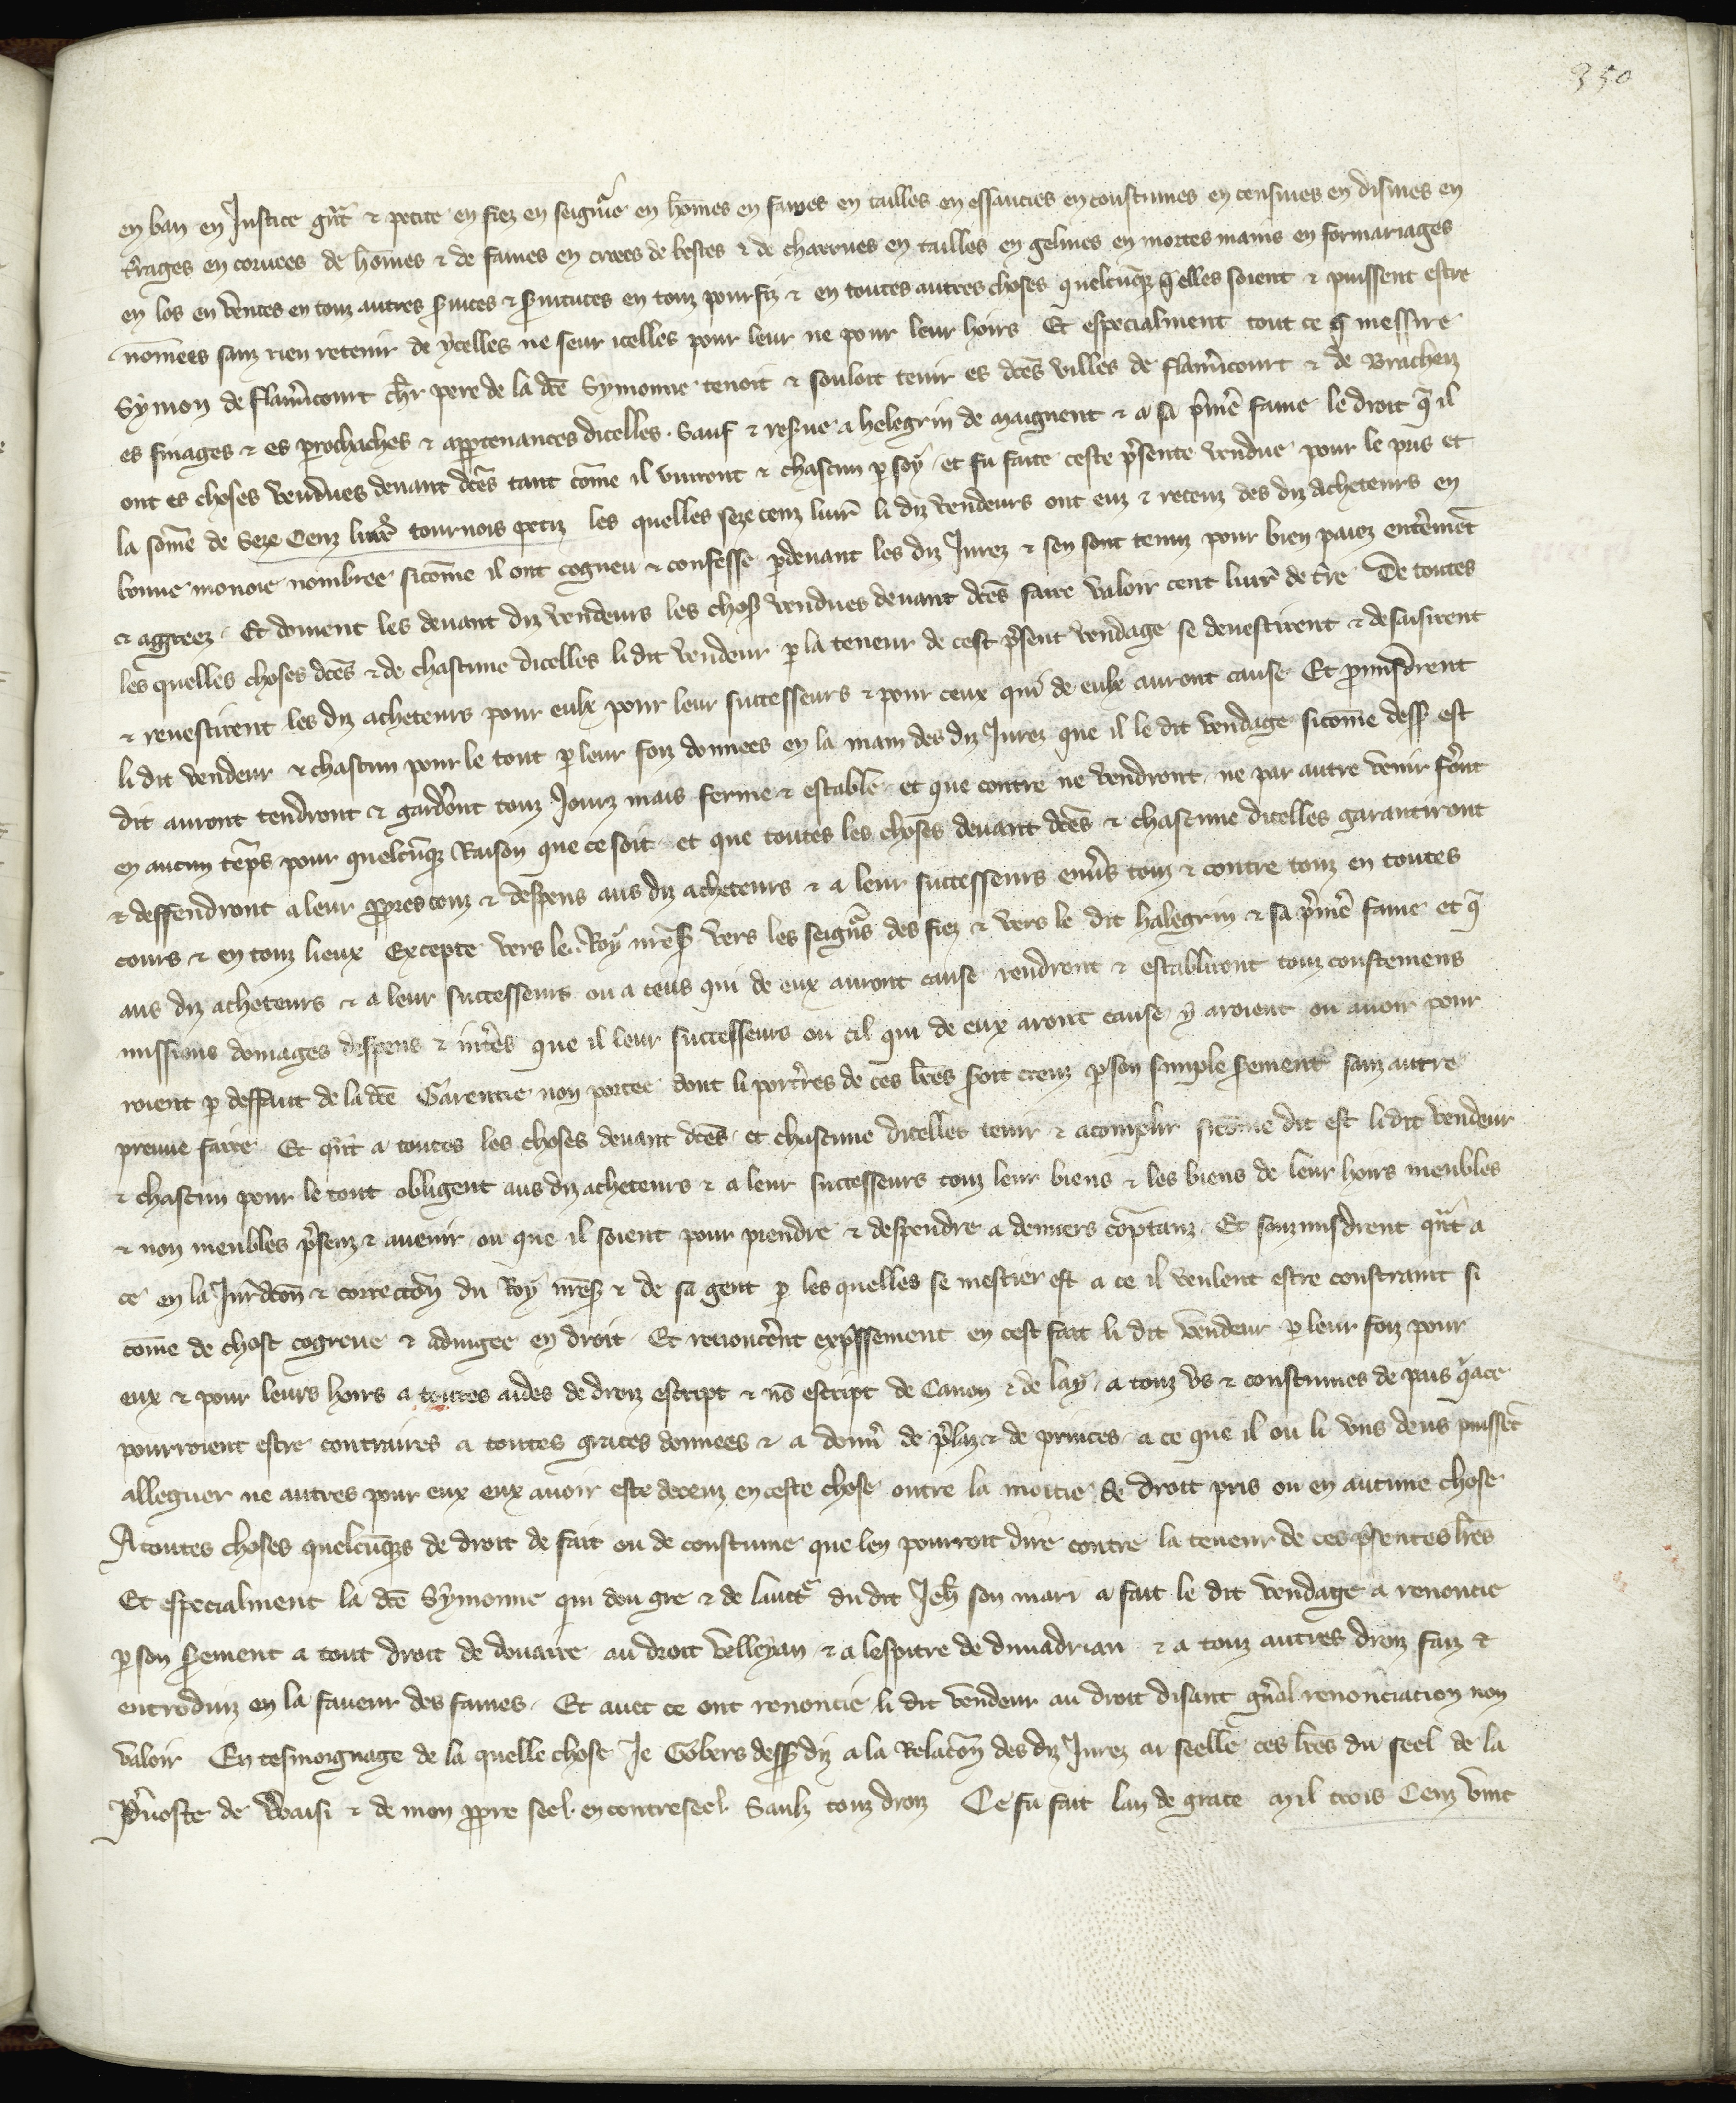 350
en ban en Justice gñt & petite en fiez en seignũie en hõmes en fames en tailles en essancies en coustumes en censiues en dismes en
t̃rages en coruees de hõmes & de fames en croees de bestes & de charrues en tailles en gelines en mortes mains en formariages
en los en ventes en touz autres s̃uices & s̃uitutes en touz pourfiz & en toutes autres choses quelcũqz q̃ elles soient & puissent estre
nõmees sanz rien retenir de ycelles ne seur icelles pour leur ne pour leur hoirs Et especialment tout ce q̃ messire
Symon de flam̃icourt chr̃ pere de la dc̃e Symonne tenoit & souloit tenir es dc̃es villes de flam̃icourt & de Brachen
es finages & es prochaches & appartenances dicelles. Sauf & res̃ue a helegrin de maignent & a sa p̃mẽ fame le droit q̃ il
ont es choses vendues deuant dc̃es tant cõme il viuront & chascun p soy et fu faite ceste p̃sente vendue pour le pris et
la sõme de Seze Cenz liur̃ tournois petiz les quelles seze cenz liur̃ li diz vendeurs ont euz & receuz des diz acheteurs en
bonne monoie nombree sicõme il ont cogneu & confesse pdeuant les diz Jurez & sen sont tenuz pour bien paiez entẽrmẽt
& agreez. Et doiuent les deuant diz vendeurs les chos̃ vendues deuant dc̃es faire valoir cent liur̃ de t̃re De toutes
les quelles choses dc̃es & de chascune dicelles li dit vendeur p la teneur de cest p̃sent vendage se deuestirent & desaisirent
& reuestirent les diz acheteurs pour eulx pour leur successeurs & pour ceux qui de eulx auront cause Et promisdrent
li dit vendeur & chascun pour le tout p leur foiz donnees en la main des diz Jurez que il le dit vendage sicõme dess̃ est
dit auront tendront & gardr̃ont touz Jourz mais ferme & estable et que contre ne vendront ne par autre venir fer̃ont
en aucun tẽps pour quelcũqz Raison que ce soit et que toutes les choses deuant dc̃es & chascune dicelles garantiront
& deffendront a leur ppres couz & despens aus diz acheteurs & a leur successeurs enũs touz & contre touz en toutes
cours & en touz lieux Excepte vers le Roy nr̃es̃ vers les seigñrs des fiez & vers le dit halegrin & sa p̃mẽ fame et q̃
aus diz acheteurs & a leur successeurs ou a ceus qui de eux auront cause rendront & establiront touz coustemens
missions domages despens & int̃res que il leur successeurs ou cil qui de eux aront cause y aroient ou auoir pour
roient p deffaut de la dc̃e Garentie non portee dont li port̃res de ces lr̃es soit creuz p son simple s̃ement sanz autre
preuue faire Et q̃nt a toutes les choses deuant dc̃es et chascune dicelles tenir & acomplir sicõme dit est li dit vendeur
& chascun pour le tout obligent aus diz acheteurs & a leur successeurs touz leur biens & les biens de leur hoirs meubles
& non meubles p̃senz & auenir ou que il soient pour prendre & despendre a deniers cõptanz Et souzmisdrent q̃nt a
ce en la Jurd̃con & correctõn du Roy nr̃es̃ & de sa gent p les quelles se mestier est a ce il veulent estre constraint si
cõme de chose cogneue & adiugee en droit Et renoncẽrnt exp̃ssement en cest fait li dit vendeur p leur foiz pour
eux & pour leurs hoirs a toutes aides de droiz escript & nõ escript de Canon & de lay a touz vs & coustumes de pais q̃ ace
pourroient estre contraires a toutes graces donnees & a donñ de p̃laz & de princes a ce que il ou li vns deus puissẽt
alleguer ne autres pour eux eux auoir este deceuz en ceste chose outre la moitie de droit pris ou en aucune chose
A toutes choses quelcũqs de droit de fait ou de coustume que len pourroit dire contre la teneur de ces p̃sentes lr̃es
Et especialment la dc̃e Symonne qui dou gre & de lauct̃ du dit Jeh̃ son mari a fait le dit vendage a renoncie
p son s̃ement a tout droit de douaire au droit velleyan & a lespitre de diuadrian & a touz autres droiz faiz &
entroduiz en la faueur des fames. Et auec ce ont renoncie li dit vendeur au droit disant gñal renonciacion non
valoir En tesmoignage de la quelle chose Je Gobers dess̃ diz a la Relacõn des diz Jurez ai seelle ces lr̃es du seel de la
P̃uoste de Waisi & de mon ppre seel en contreseel Saulz touz droiz Ce fu fait lan de grace mil trois Cenz vint